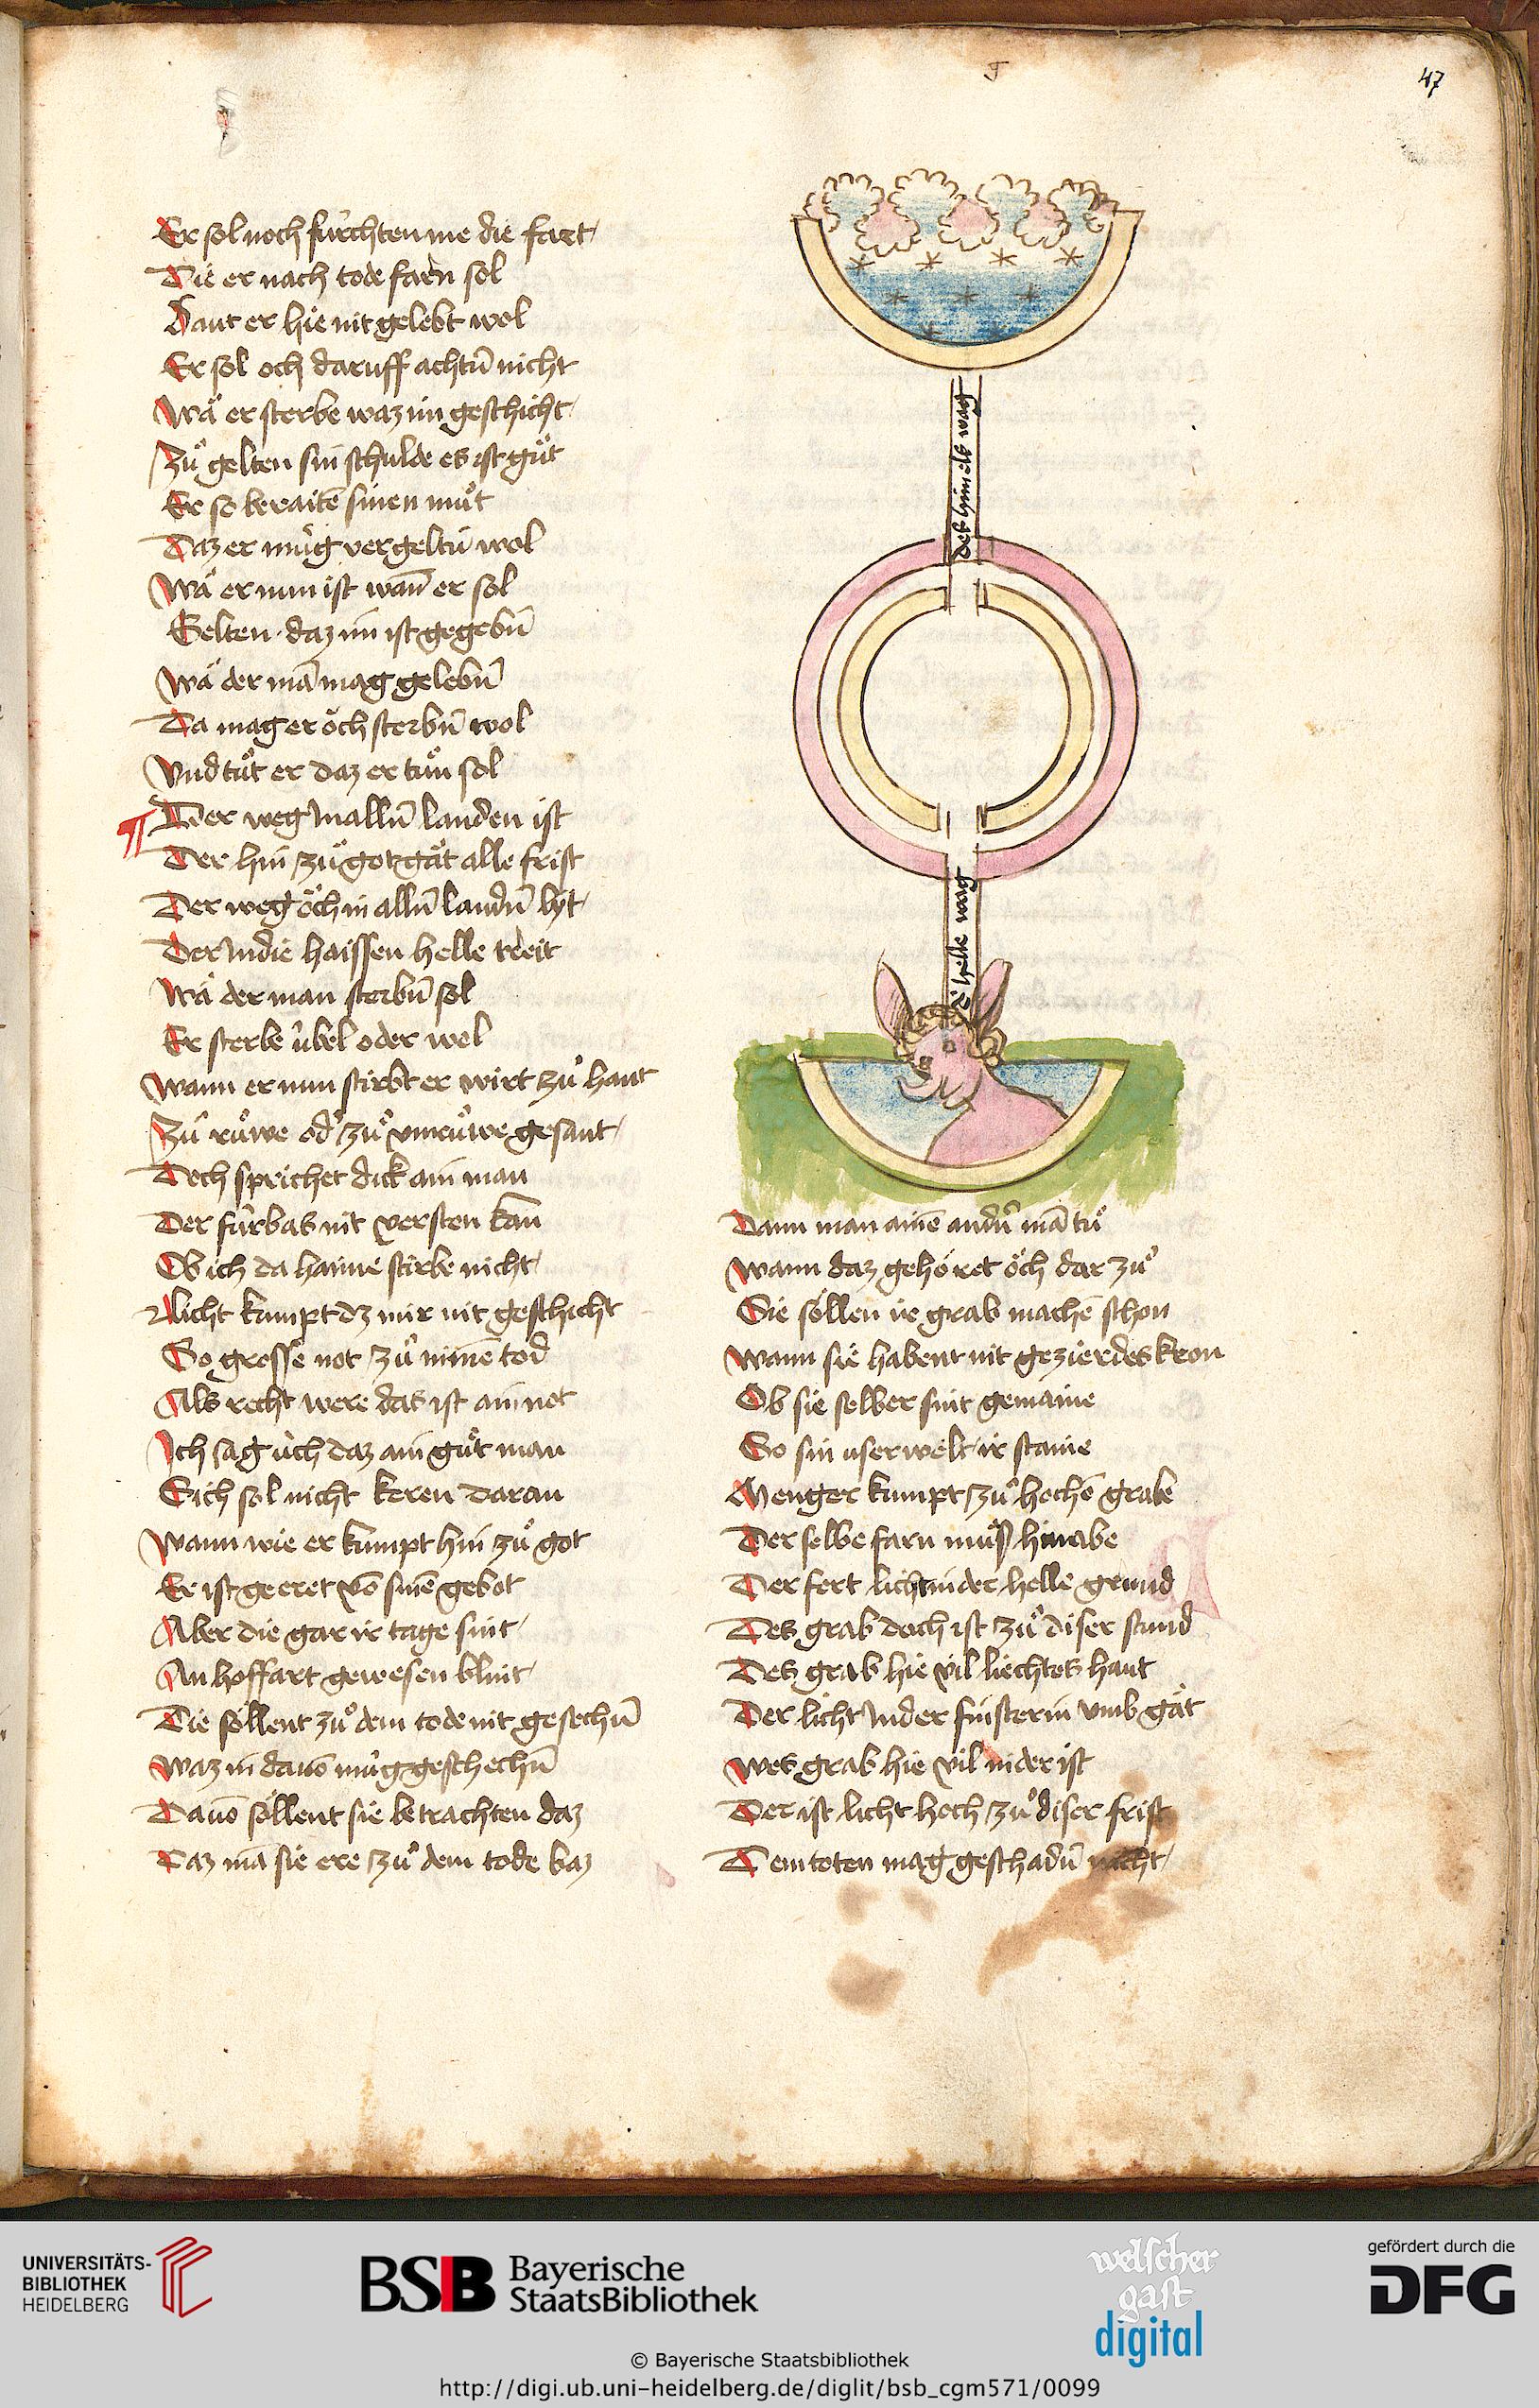 47
Er sol noch fürchten me die fart
Die er nach tode farn sol
Hant er hie nit gelebt wol
Er sol och daruff achtū nicht
Wä er sterbe waz im geschicht
Zů gelten sin schulde es ist gůt
Er so beraitē sinen můt
Daz er müg vergeltū wol
Wä er nun ist wañ er sol
Gelten daz im ist gegebn̄
Wä der mā mag gelebn̄
Da mag er öch sterbn̄ wol
Vnd tůt er daz er tůn sol
Der weg In allū landen ist
Der hin zů got gät alle frist
Der weg öch in allū landū lyt
Der In die haissen helle treit
Wä der man sterbn̄ sol
Er sterbe übel oder wol
Wann er nun stirbt er wirt zů hant
Zů růwe od' zů vnrůwe gesant
Doch sprichet dick ain man
Der fürbas nit versten kan
Ob ich da haime stirbe nicht
Licht kumpt dz mir nit geschicht
So grosse not zů minē tod
Als recht were das ist ain not
Ich sag üch daz ain gůt man
Sich sol nicht keren daran
Wann wie er kumpt hin zů got
Er ist geeret vō sinē gebot
Aber die gar ir tage sint
An hoffart gewesen blint
Die söllent zů dem tode nit gesechū
Waz in dauō müg geschechū
Dauō söllent sie betrachten daz
Daz mā sie ere zů dem tode baz
des himels wag
d' helle wag
Dann man ainē andū mā tů
Wann daz gehöret öch dar zů
Sie söllen ir grab machē schon
Wann sie habent nit gezierdes kron
Ob sie selber sint gemaine
So sin userwelt ir staine
Menger kumpt zů hochē grabe
Der selbe farn můs hinabe
Der fert licht in der helle grund
Des grab doch ist zů diser stund
Des grab hie vil liechtes hant
Der licht In der finsterin vmb gät
Wes grab hie vil nider ist
Der ist licht hoch zů diser frist
Dem toten mag geschadū nicht
UNIVERSITÄTS-
BIBLIOTHEK
HEIDELBERG
BSB Bayerische
StaatsBibliothek
welscher
gast
digital
gefördert durch die
DFG
© Bayerische Staatsbibliothek
http://digi.ub.uni-heidelberg.de/diglit/bsb_cgm571/0099